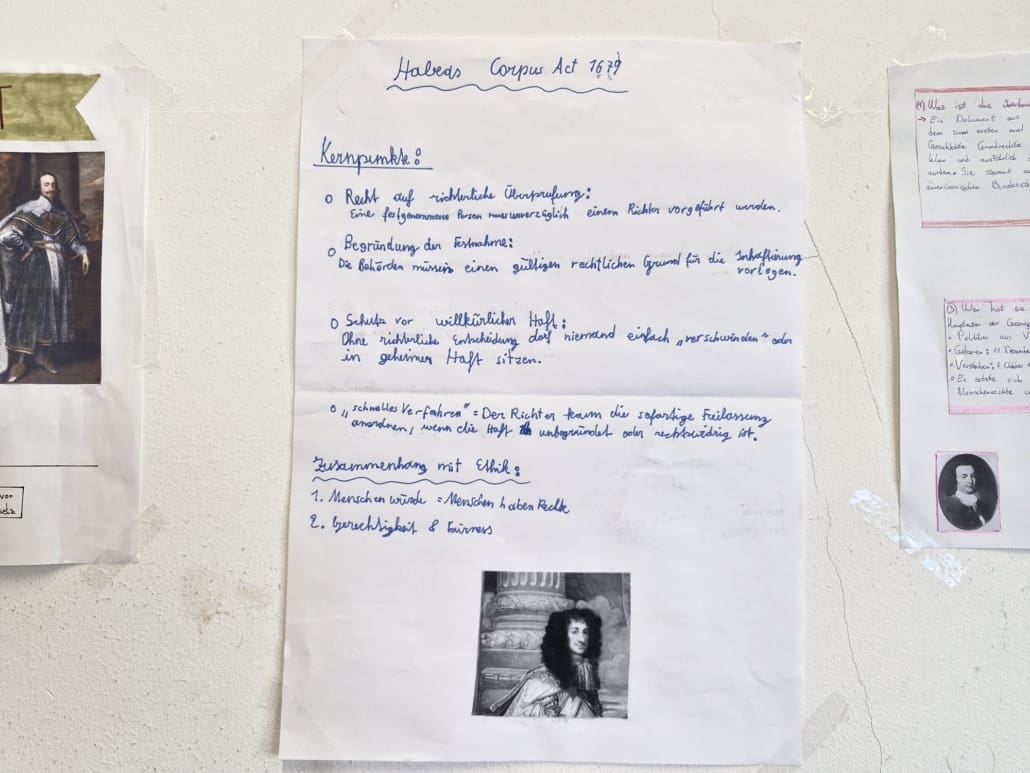 T
von
Habeas Corpus Act 1679
Kernpunkte:
o Recht auf richterliche Überprüfung:
Eine festgenommene Person muss unverzüglich einem Richter vorgeführt werden.
o Begründung der Festnahme:
Die Behörden müssen einen gültigen rechtlichen Grund für die Inhaftierung
vorlegen.
o Schutz vor willkürlicher Haft:
Ohne richterliche Entscheidung darf niemand einfach „verschwinden" oder
in geheimer Haft sitzen.
o „schnelles Verfahren" = Der Richter kann die sofortige Freilassung
anordnen, wenn die Haft unbegründet oder rechtswidrig ist.
Zusammenhang mit Ethik:
1. Menschenwürde = Menschen haben Rechte
2. Gerechtigkeit & Fairness
(1) Was ist das
→ Ein Dokument aus
dem zum ersten mal
Grundrechte
klar und ausführlich
Sie stammt
amerikanischen
(3) Wer hat sie
Hauptautor war George
• Politiker aus V
• Geboren: 11. Dezember
• Verstorben: 7. Oktober
• Er setzte sich
Menschenrechte